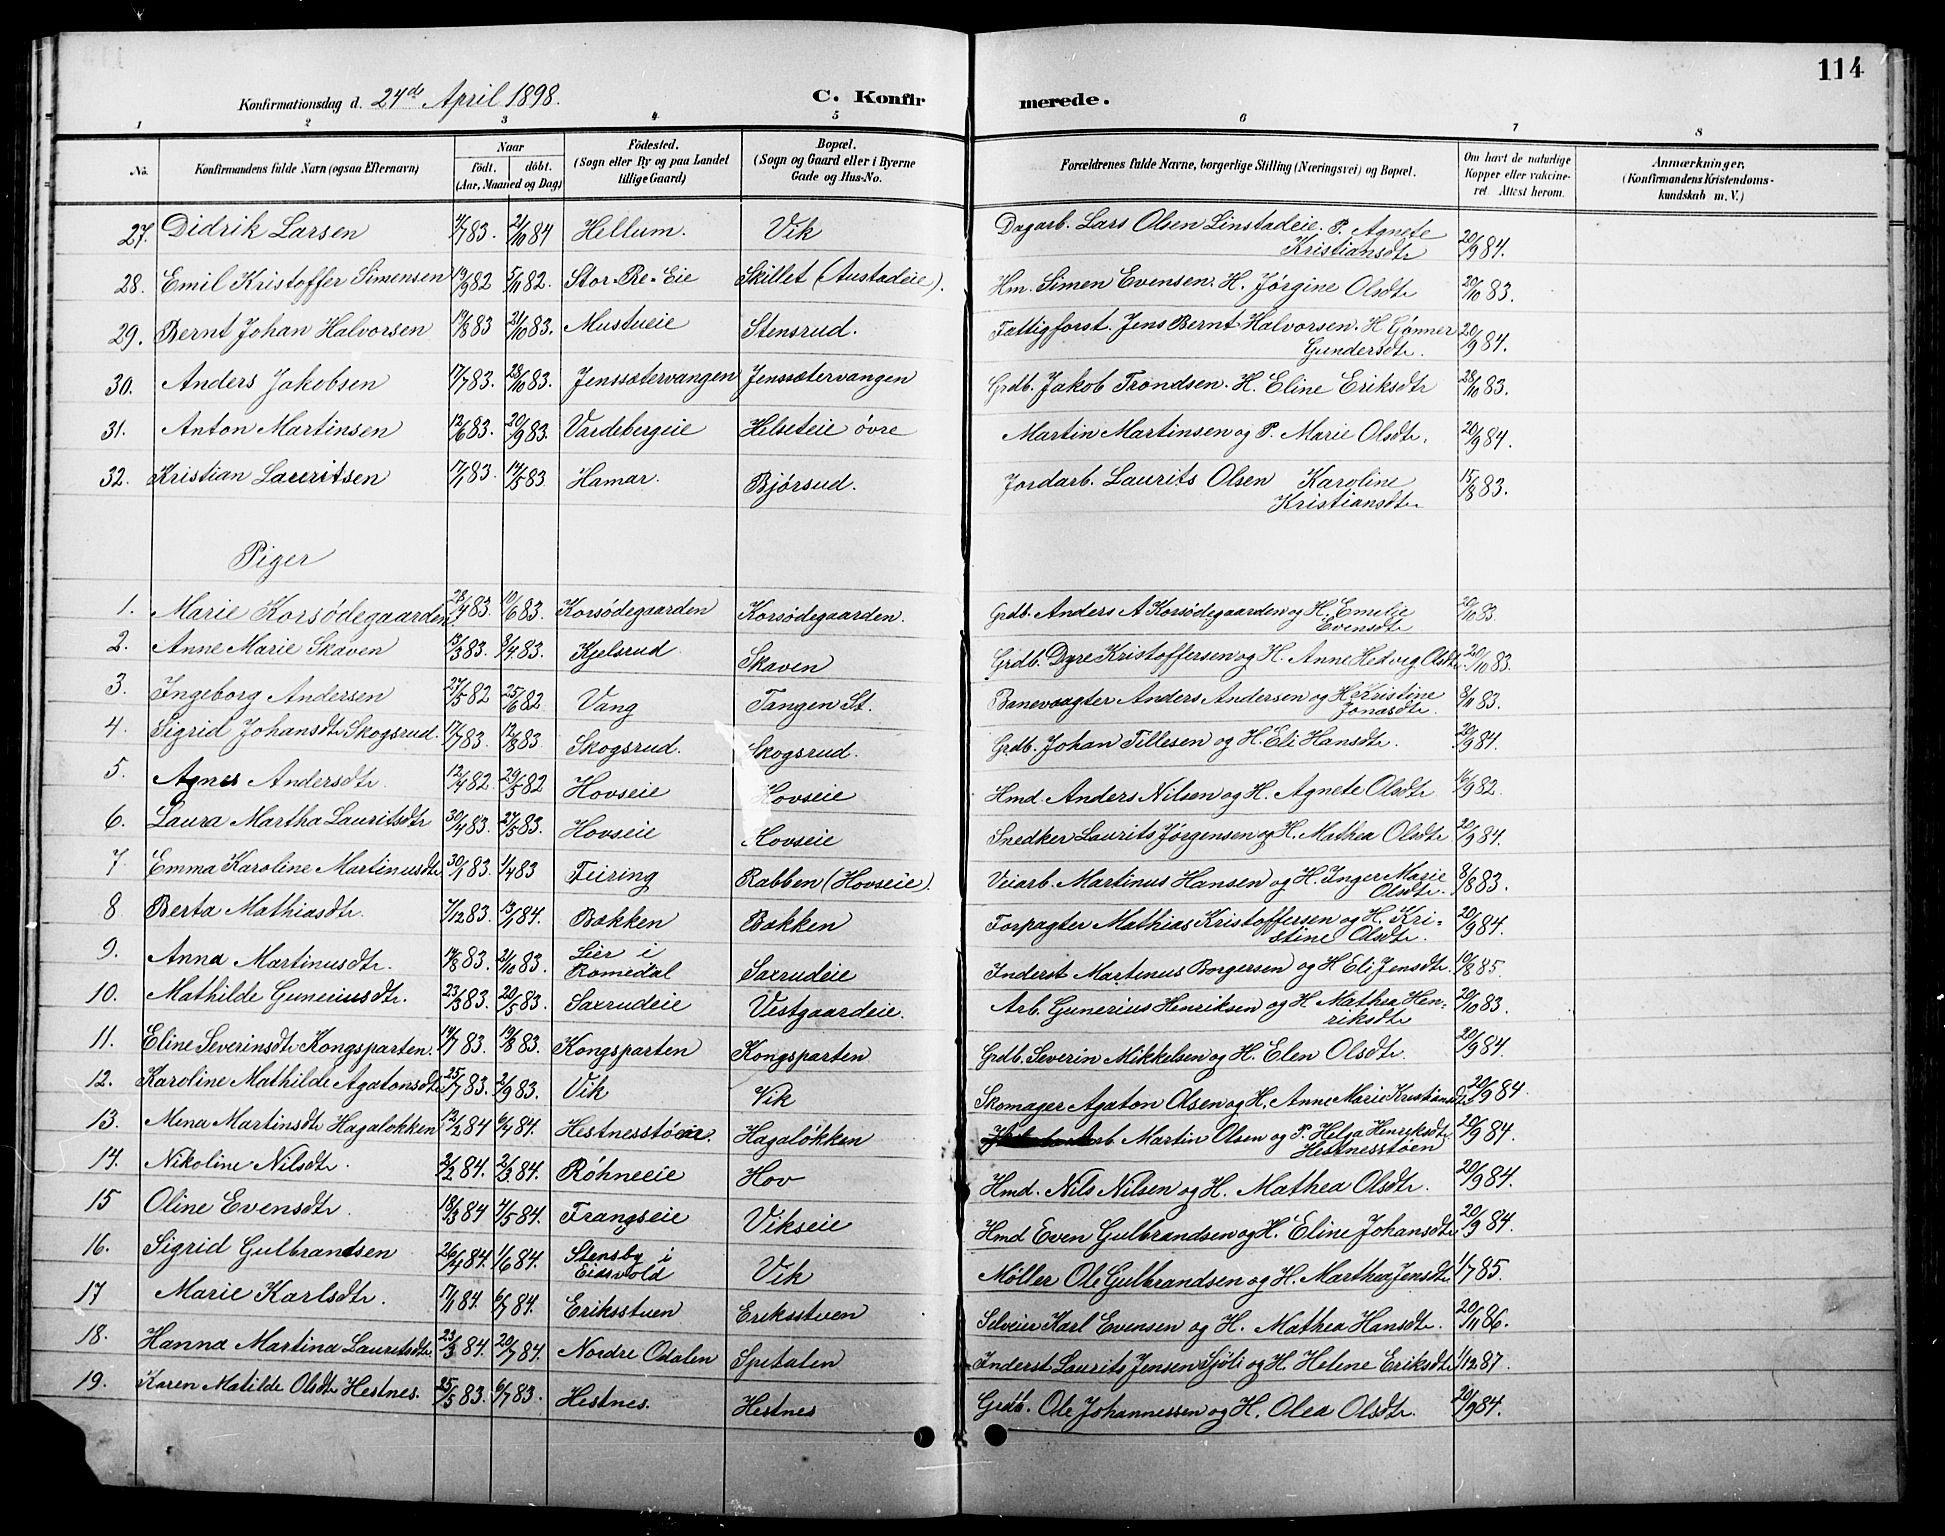 114
Konfirmationsdag d. 24de April 1898. C. Konfirmerede.
1 2 3 4 5 6 7 8
No. Konfirmandens fulde Navn (ogsaa Efternavn) Naar født. døbt. (Aar, Maaned og Dag) Fødested. (Sogn eller By og paa Landet tillige Gaard) Bopæl. (Sogn og Gaard eller i Byerne Gade og Hus-No. Forældrenes fulde Navne, borgerlige Stilling (Næringsvei) og Bopæl. Om havt de naturlige Kopper eller vakcineret. Attest herom. Anmærkninger. (Konfirmandens Kristendomskundskab m. V.)
27. Didrik Larsen 4/7 83. 21/10 84 Hellum. Vik Dagarb. Lars Olsen Linstadeie. P. Agnete Kristiansdtr 20/9 84.
28. Emil Kristoffer Simensen 19/9 82 5/11 82. Stor-Re-Eie Skillet (Austadeie). Hm. Simen Evensen. H. Jørgine Olsdtr 20/10 83.
29. Bernt Johan Halvorsen 19/8 83 21/10 83. Mustueie Stensrud. Fattigforst. Jens Bernt Halvorsen. H Gønner Gundersdtr. 20/9 84.
30. Anders Jakobsen 17/7 83. 28/10 83. Jenssætervangen Jenssætervangen Grdb. Jakob Trondsen. H. Eline Eriksdtr 28/10 83.
31. Anton Martinsen 12/6 83. 20/9 83. Vardebergeie Helseteie øvre Martin Martinsen og P. Marie Olsdtr. 20/9 84.
32. Kristian Lauritsen 17/1 83. 14/5 83. Hamar. Bjørsud. Jordarb. Laurits Olsen Karoline Kristiansdtr 15/8 83.
Piger
1. Marie Korsødegaarden 28/4 83. 10/6 83. Korsødegaarden Korsødegaarden. Grdb. Anders A Korsødegaarden og H. Emelie Evensdtr 20/10 83.
2. Anne Marie Skaven 13/3 83. 8/4 83. Kjelsrud Skaven Grdb. Dyre Kristoffersen og H. Anne Hedvig Olsdtr. 20/10 83.
3. Ingeborg Andersen 27/5 82 25/6 82. Vang Tangen St. Banevogter Anders Andersen og H. Kristine Jonasdtr. 8/11 83.
4. Sigrid Johansdtr Skogsrud. 17/7 83. 12/8 83 Skogsrud. Skogsrud. Grdb. Johan Tillesen og H. Eli Hansdtr. 20/9 84.
5. Agnes Andersdtr. 12/4 82. 29/5 82 Hovseie Hovseie Hmd. Anders Nilsen og H. Agnete Olsdtr 16/9 82.
6. Laura Martha Lauritsdtr 30/4 83. 27/5 83. Hovseie Hovseie Snedker Laurits Jørgensen og H. Mathea Olsdtr 20/9 84.
7 Emma Karoline Martinusdtr 30/1 83. 1/4 83 Feiring Rabben (Hovseie). Veiarb. Martinus Hansen og H. Inger Marie Olsdtr. 8/8 83.
8 Berta Mathiasdtr. 7/12 83. 13/1 84. Bakken Bakken Forpagter Mathias Kristoffersen og H. Kristine Olsdtr. 20/9 84.
9. Anna Martinusdtr. 14/8 83. 21/10 83. Lier i Romedal Saxrudeie Inderst Martinus Borgersen og H Eli Jensdtr. 19/8 85.
10. Mathilde Guneriusdtr. 23/3 83. 20/5 83. Saxrudeie Vestgaardeie. Arb. Gunerius Henriksen og H. Mathea Henriksdtr 20/10 83.
11. Eline Severinsdtr Kongsparten. 14/7 83. 19/8 83. Kongsparten Kongsparten Grdb. Severin Mikkelsen og H. Elen Olsdtr. 20/9 84.
12. Karoline Mathilde Agatonsdtr 25/7 83. 2/9 83. Vik Vik Skomager Agaton Olsen og H. Anne Marie Kristiansdtr 20/9 84.
13. Mena Martinsdtr Hagaløkken 12/2 84 6/4 84. Hestnesstøen. Hagaløkken Arb. Martin Olsen og P. Helga Henriksdtr Hestnesstøen 20/9 84.
14. Nikoline Nilsdtr. 2/2 84. 2/3 84. Røhneeie Hov Hmd. Nils Nilsen og H. Mathea Olsdtr. 20/9 84.
15 Oline Evensdtr. 18/3 84 7/5 84. Frangseie Vikseie Hmd Even Gulbrandsen og H. Eline Johansdtr 20/9 84.
16. Sigrid Gulbrandsen 26/4 84. 1/6 84. Stensby i Eidsvold Vik Møller Ole Gulbrandsen og H. Marthea Jensdtr 1/7 85.
17 Marie Karlsdtr. 17/1 84. 6/7 84. Eriksstuen Eriksstuen Selveier Karl Evensen og H. Mathea Hansdtr. 20/11 86.
18. Hanna Martina Lauritsdtr. 23/3 84. 20/7 84. Nordre Odalen Spetalen Inderst Laurits Jensen Sjøli og H. Helene Eriksdtr 1/12 87.
19. Karen Matilde Olsdtr Hestnes. 25/5 83. 6/7 83. Hestnes. Hestnes Grdb. Ole Johannessen og H. Olea Olsdtr. 20/9 84.